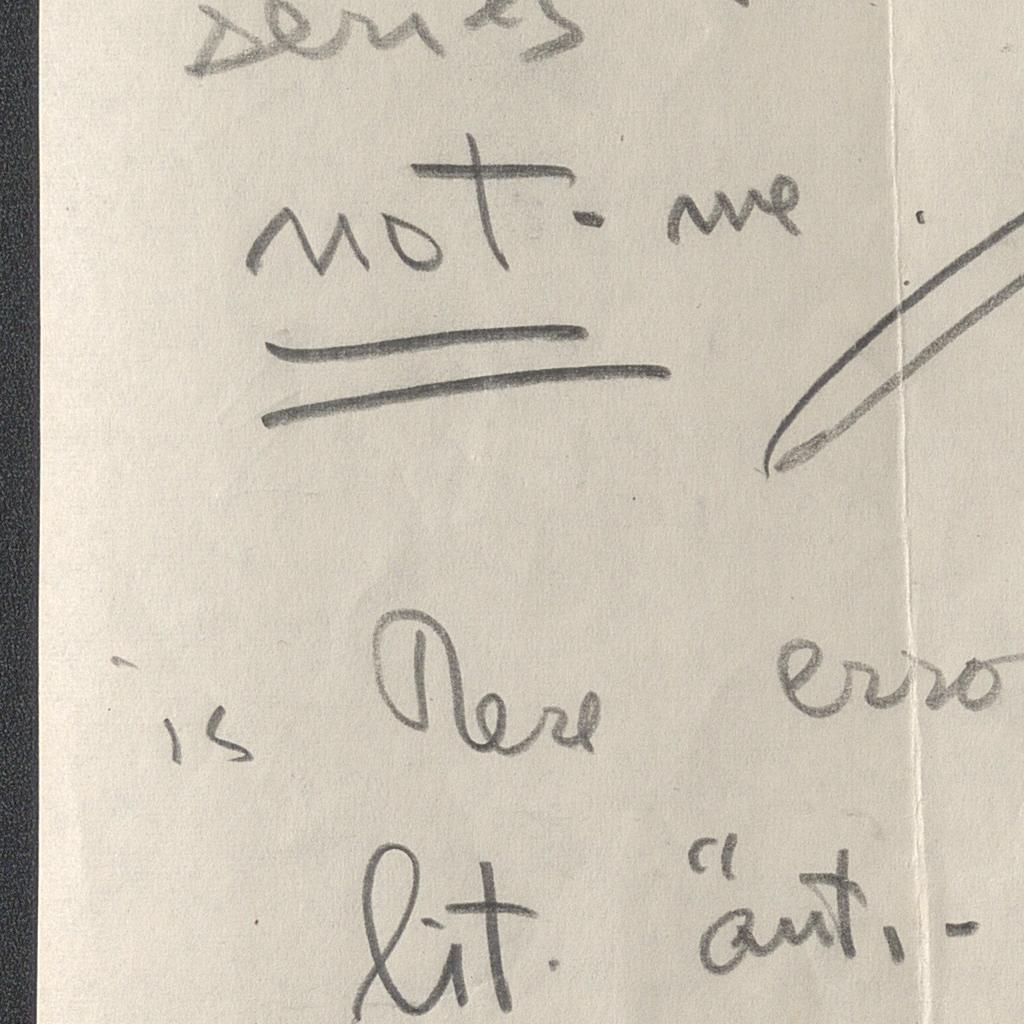 series
not - me
is there erro
lit. "aut. -